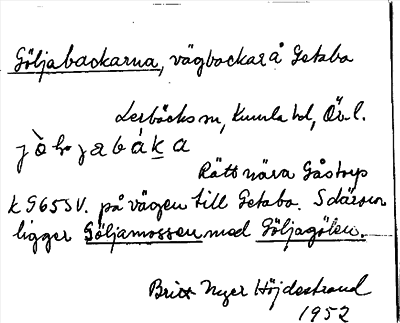 Göljabackarna, vägbackar å Getabo
Lerbäcks sn, Kumla hd, Ör. l.
Rätt nära Gåstorp
k 965 SV. på vägen till Getabo. S därom
ligger Göljamossen med Göljagölen.
Britt Nyer Höjdestrand
1952